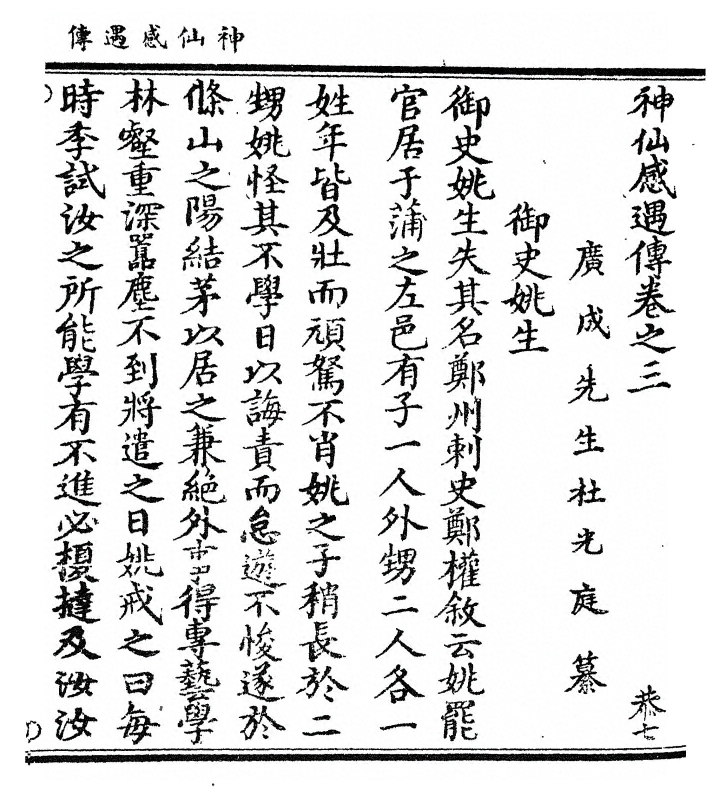 神仙感遇傳
神仙感遇傳卷之三 恭七
廣成先生杜光庭纂
御史姚生
御史姚生失其名鄭州刺史鄭權敘云姚罷
官居于蒲之左邑有子一人外甥二人各一
姓年皆及壯而頑駑不肖姚之子稍長於二
甥姚怪其不學日以誨責而怠遊不悛遂於
條山之陽結茅以居之兼絕外事得專藝學
林壑重深囂塵不到將遣之日姚戒之曰每
時季試汝之所能學有不進必榎撻及汝汝